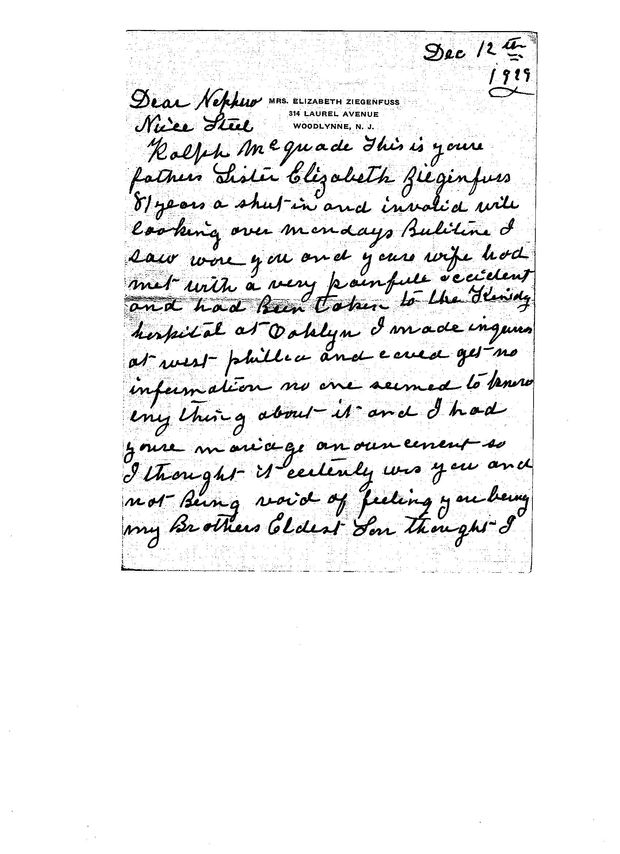 Dec 12th
1929
Dear Nephew
MRS. ELIZABETH ZIEGENFUSS
314 LAUREL AVENUE
WOODLYNNE, N. J.
Niece Steel
Ralph McQuade This is youre
fathers Sister Elizabeth Zieginfuss
81 years a shut-in and invalid wile
looking over mondays Bulitine I
saw wore you and youre wife had
met with a very painfule accident
and had Been Taken to the
hospital at Oaklyn I made inquires
at west phillia and coved get no
infermation no one seemed to know
eny thing about it and I had
youre mariage anouncement so
I thought it certenly was you and
not Being void of feeling you being
my Brothers Eldest Son thought I